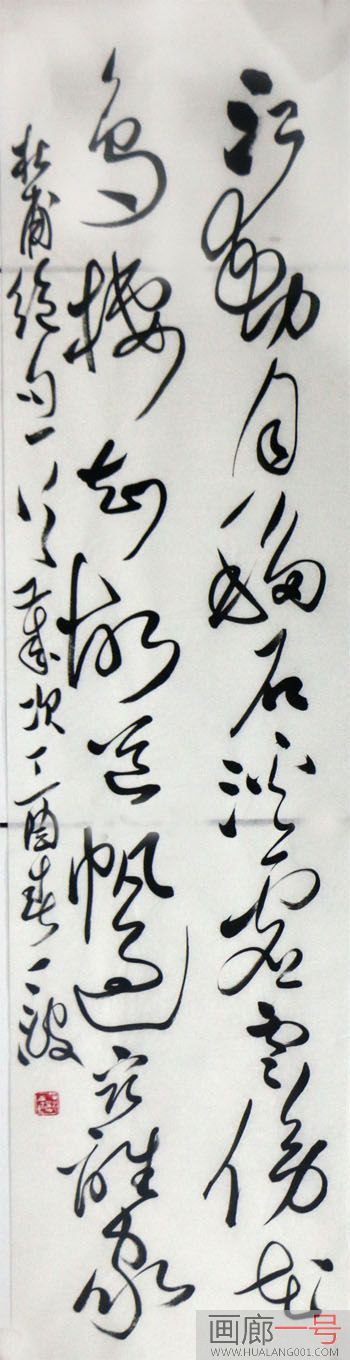 江動月移石溪虚雲傍花
鳥棲知故道帆過宿誰家
杜甫絕句一首歲次丁酉春
画廊一号
WWW.HUALANG001.COM